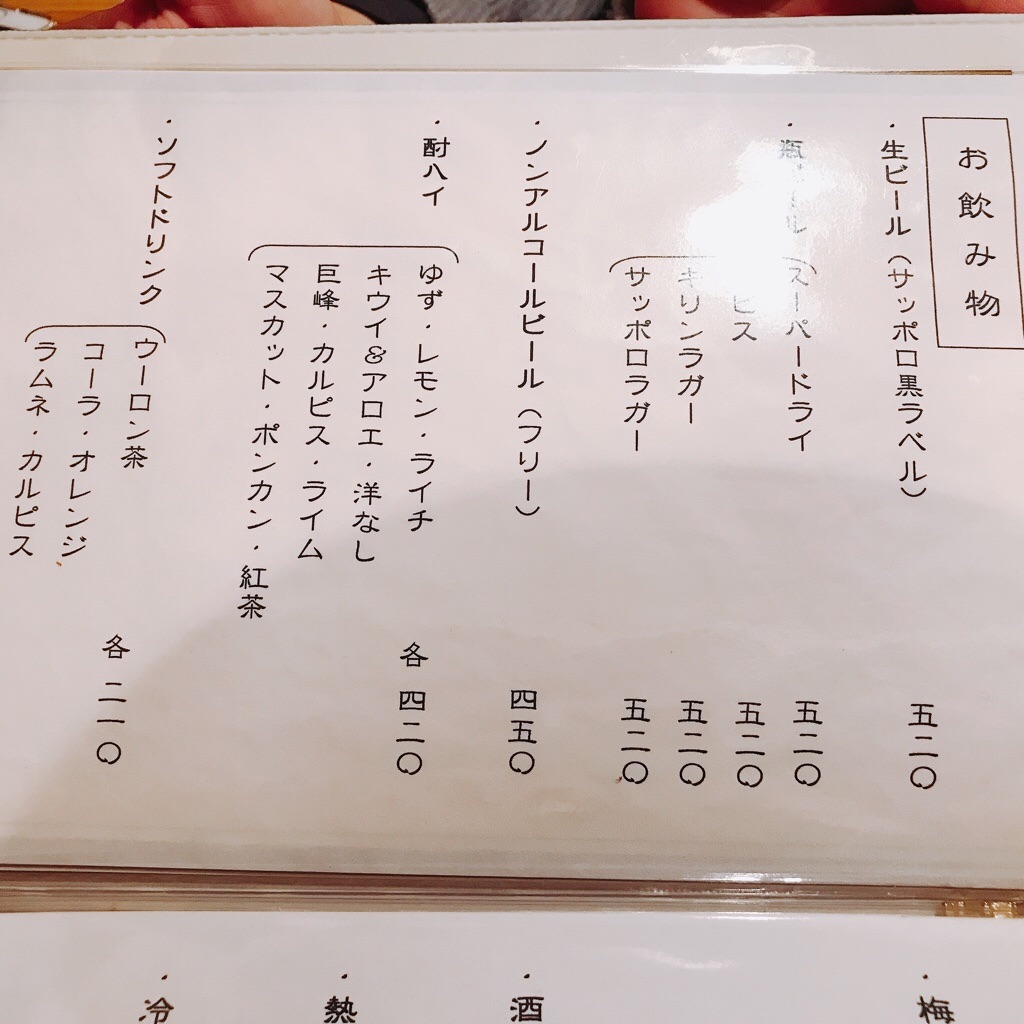 お飲み物
・生ビール（サッポロ黒ラベル） 五二〇
・瓶 スーパードライ 五二〇
ピス 五二〇
キリンラガー 五二〇
サッポロラガー 五二〇
・ノンアルコールビール（フリー） 四五〇
・酎ハイ
ゆず・レモン・ライチ 各 四二〇
キウイ&アロエ・洋なし
巨峰・カルピス・ライム
マスカット・ポンカン・紅茶
・ソフトドリンク
ウーロン茶 各 二一〇
コーラ・オレンジ
ラムネ・カルピス
・梅
・酒
・熱
・冷